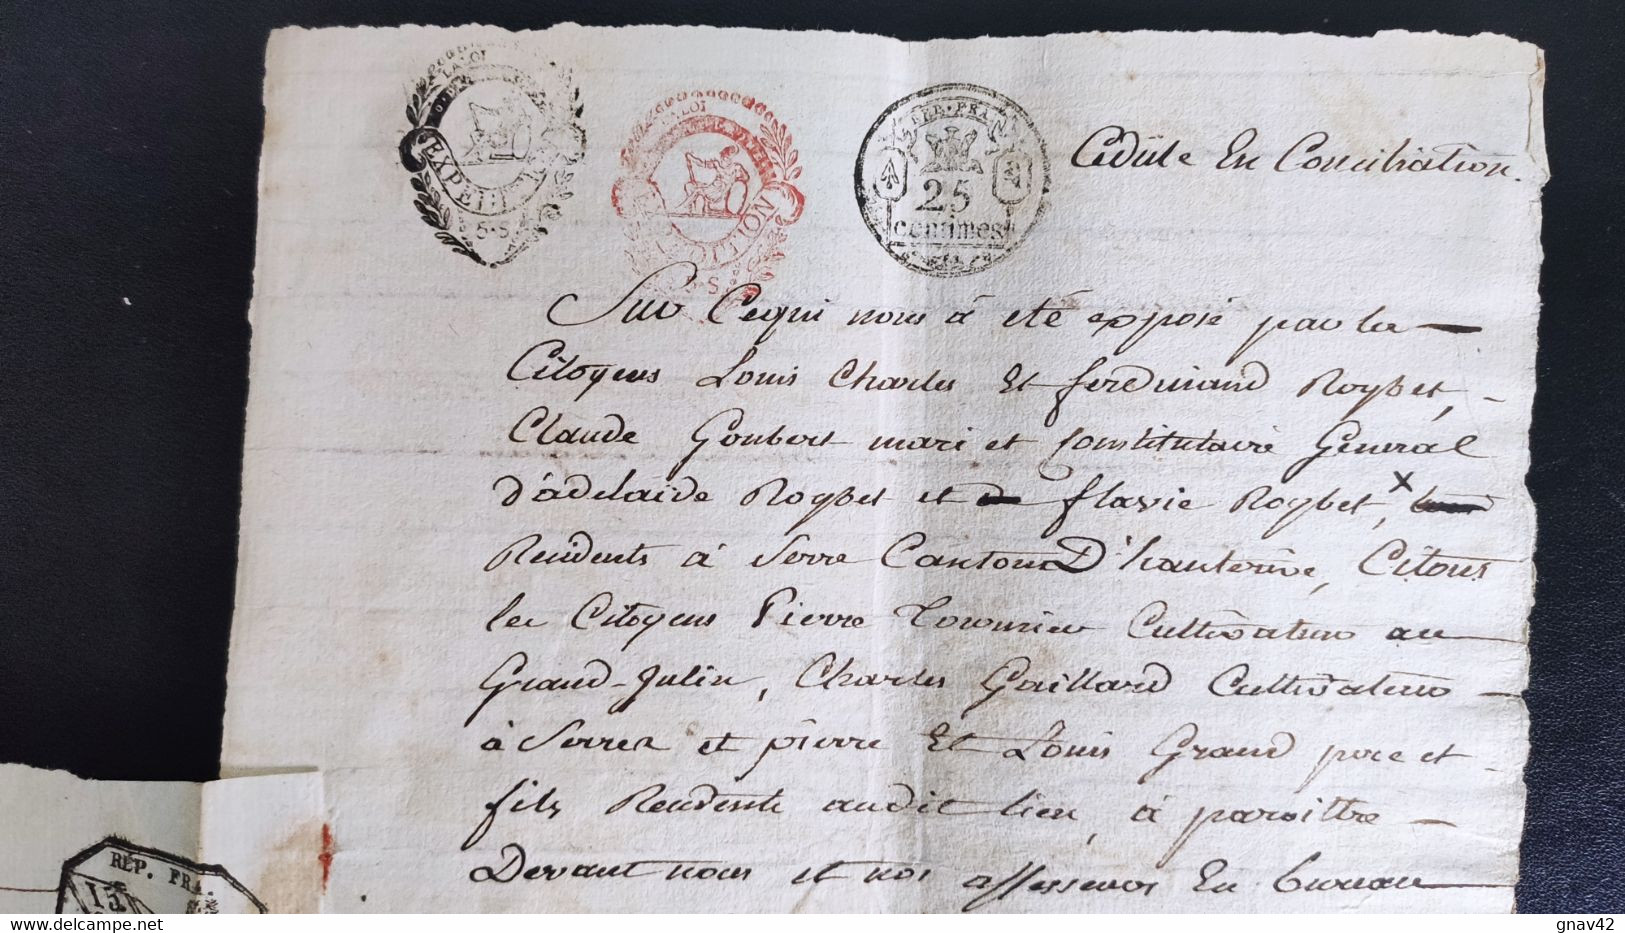 LA LOI
EXPEDITION
5·S
LA LOI
5·S
REP·FRA
25
centimes
Cédule En Conciliation.
Sur Cequi nous à été exposé par les
Citoyens Louis Charles Et ferdinand Roybet,
Claude Goubert mari et Constitutaire General
d'adelaïde Roybet et flavie Roybet,
Residents à Serre Canton D'hauterive, Citons
les Citoyens Pierre Cultivateur au
Grand-Julin, Charles Gaillard Cultivateur
à Serres et pierre Et Louis Grand pere et
fils Residents audit lieu, à paroittre
Devant nous et nos assesseurs En bureau
REP. FRA.
15
www.delcampe.net
gnav42